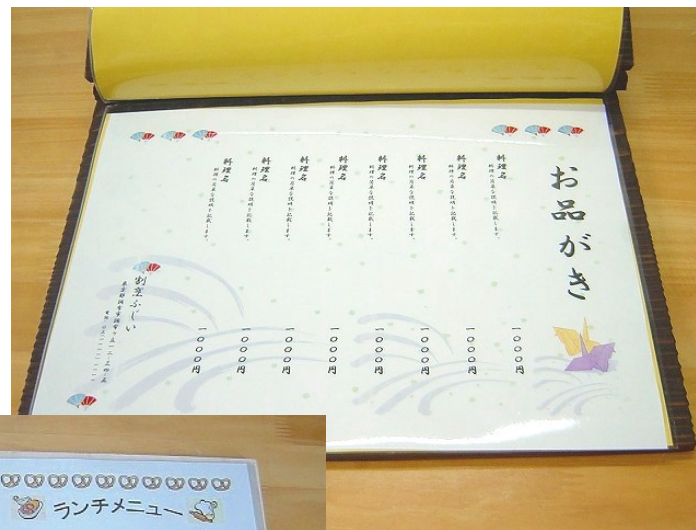 お品がき
料理名
料理の簡単な説明を記載します。
一〇〇〇円
料理名
料理の簡単な説明を記載します。
一〇〇〇円
料理名
料理の簡単な説明を記載します。
一〇〇〇円
料理名
料理の簡単な説明を記載します。
一〇〇〇円
料理名
料理の簡単な説明を記載します。
一〇〇〇円
料理名
料理の簡単な説明を記載します。
一〇〇〇円
料理名
料理の簡単な説明を記載します。
一〇〇〇円
料理名
料理の簡単な説明を記載します。
一〇〇〇円
割烹ふじい
東京都調布市調布ヶ丘
ランチメニュー